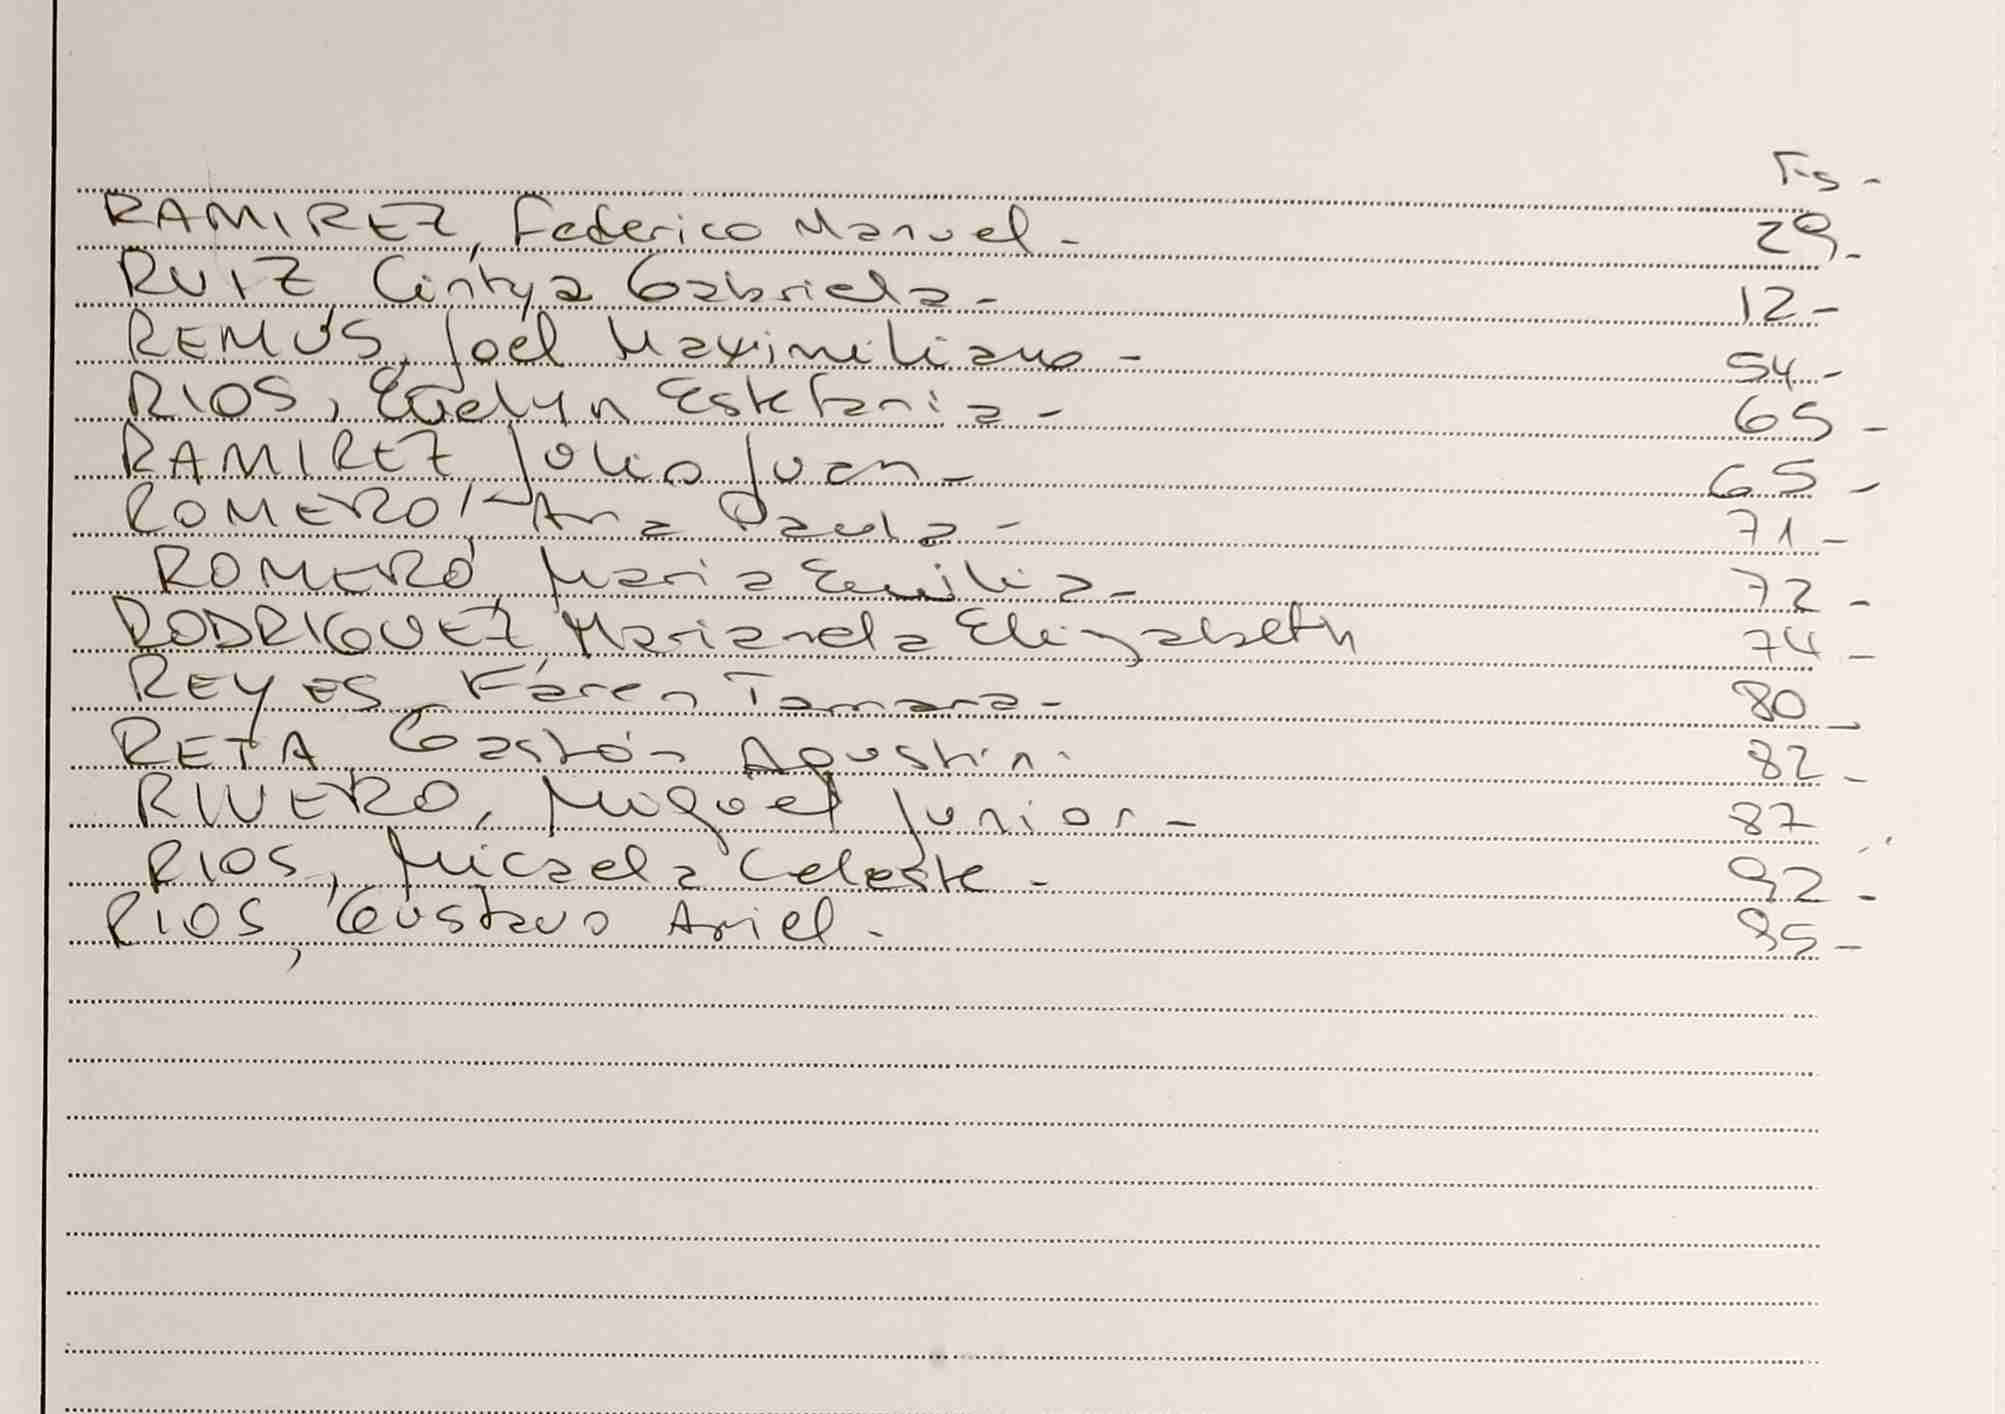 Fs -
RAMIREZ, Federico Manuel - 29 -
RUIZ, Cintya Gabriela - 12 -
REMUS, Joel Maximiliano - 54 -
RIOS, Evelyn Estefania - 65 -
RAMIREZ Julio Juan - 65 -
ROMERO, Ana Paula - 71 -
ROMERO, Maria Emilia - 72 -
RODRIGUEZ, Marianela Elizabeth 74 -
REYES, Karen Tamara - 80 -
RETA, Gastón Agustin. 82 -
RIVERO, Miguel Junior - 87
RIOS, Micaela Celeste - 92 -
RIOS, Gustavo Ariel - 95 -